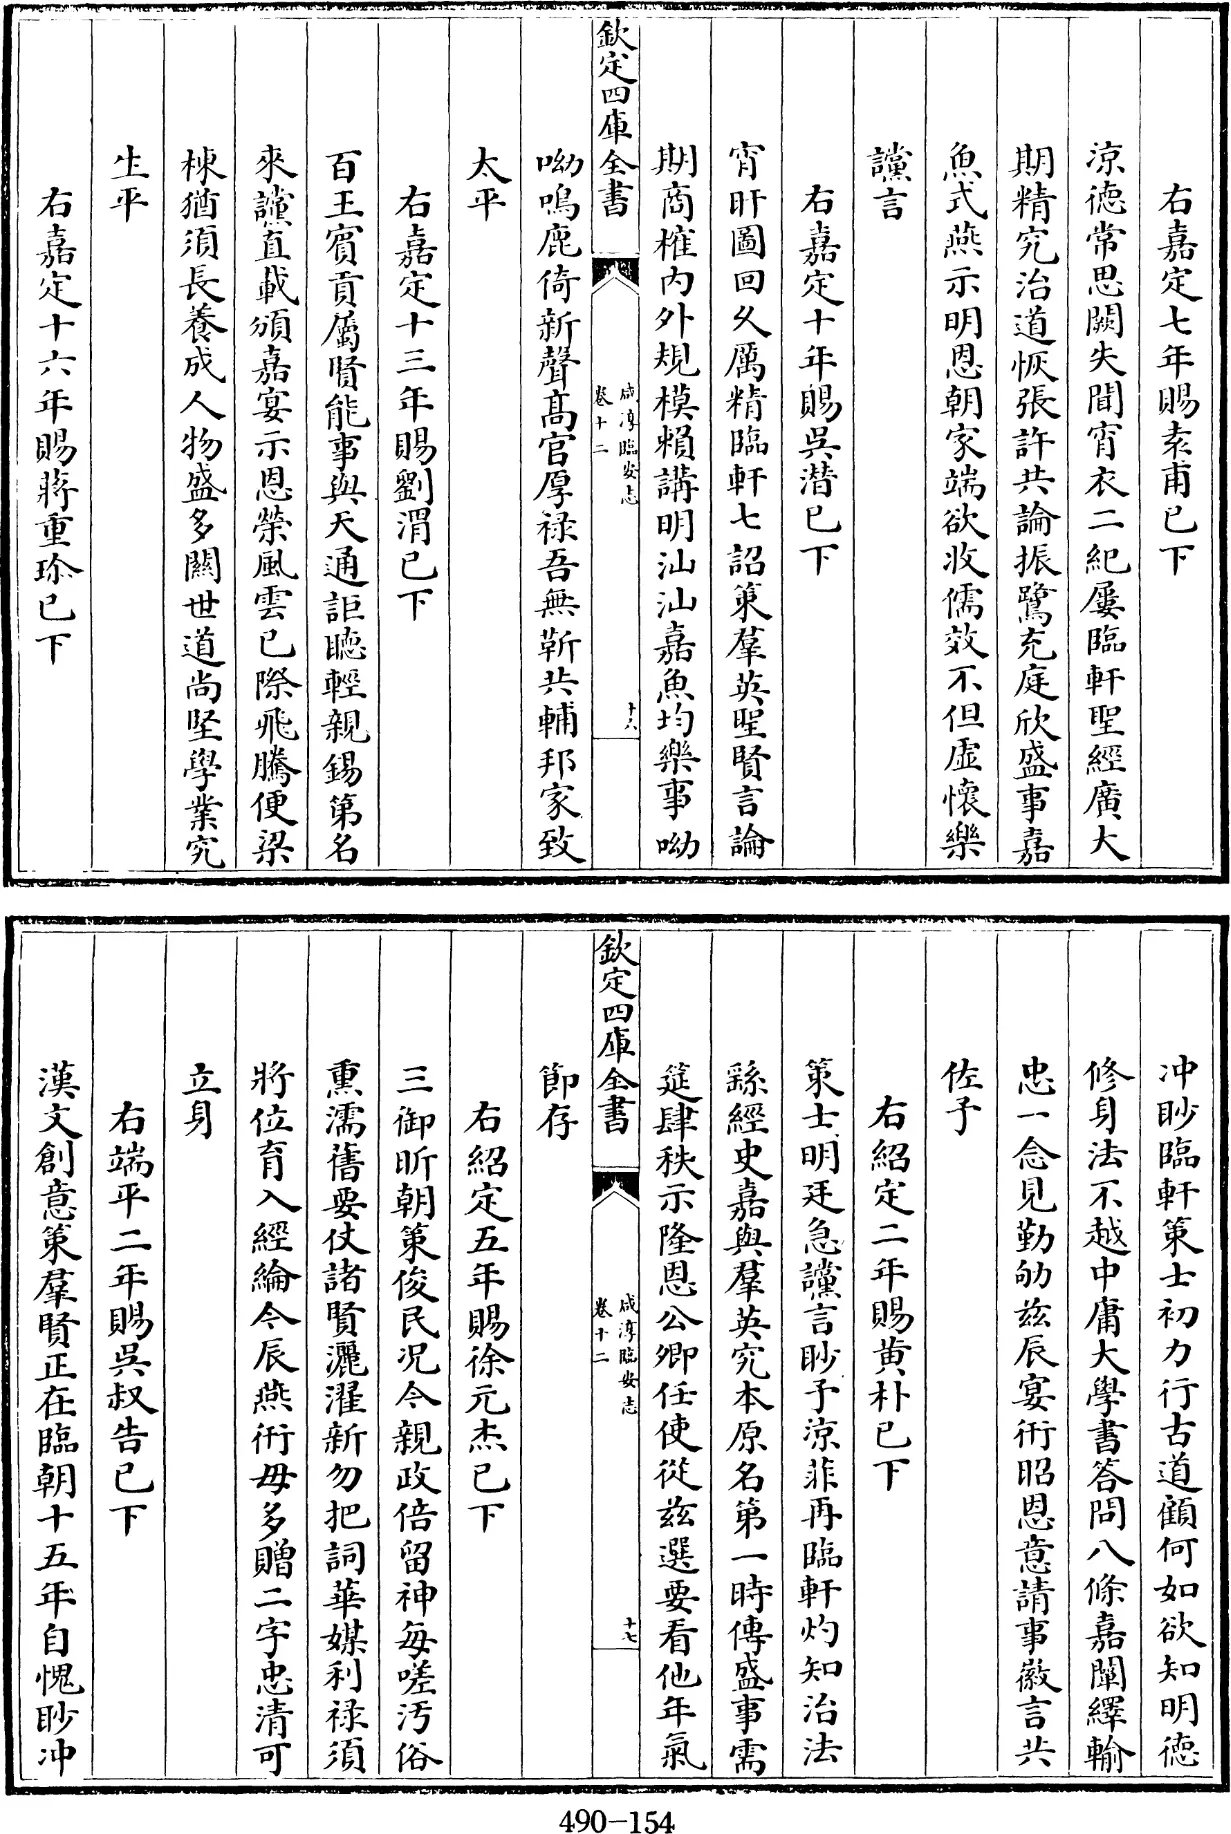 右嘉定七年賜袁甫已下
涼德常思闕失聞宵衣二紀屢臨軒聖經廣大
期精究治道恢張許共論振鷺充庭欣盛事嘉
魚式燕示明恩朝家端欲收儒效不但虚懷樂
讜言
右嘉定十年賜吳潛已下
宵旰圖回久厲精臨軒七詔策羣英聖賢言論
期商榷内外規模賴講明汕汕嘉魚均樂事呦
欽定四庫全書
咸淳臨安志
卷十二
十六
呦鳴鹿倚新聲髙官厚禄吾無靳共輔邦家致
太平
右嘉定十三年賜劉渭已下
百王賓貢屬賢能事與天通詎聽輕親錫第名
來讜直載頒嘉宴示恩榮風雲已際飛騰便梁
棟猶須長養成人物盛多關世道尚堅學業究
生平
右嘉定十六年賜蔣重珍已下
冲眇臨軒策士初力行古道顧何如欲知明德
修身法不越中庸大學書答問八條嘉闡繹輸
忠一念見勤劬兹辰宴衎昭恩意請事徽言共
佐予
右紹定二年賜黄朴已下
策士明廷急讜言眇予涼菲再臨軒灼知治法
繇經史嘉與羣英究本原名第一時傳盛事需
筵肆秩示隆恩公卿任使從兹選要看他年氣
欽定四庫全書
咸淳臨安志
卷十二
十七
節存
右紹定五年賜徐元杰已下
三御昕朝策俊民况今親政倍留神每嗟污俗
熏濡舊要仗諸賢灑濯新勿把詞華媒利禄須
將位育入經綸今辰燕衎毋多贈二字忠清可
立身
右端平二年賜吳叔告已下
漢文創意策羣賢正在臨朝十五年自愧眇冲
490-154